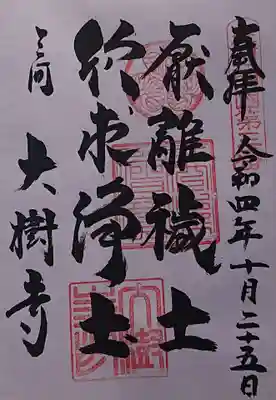 奉拝 令和四年十月二十五日
厭離穢土
欣求浄土
三河 大樹寺